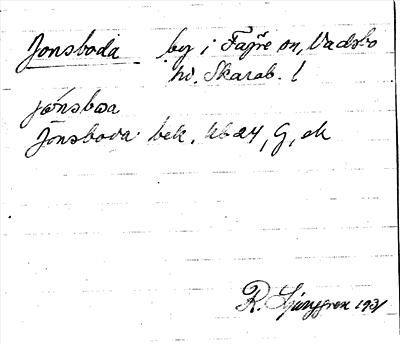 Jonsboda by i Fägre sn, Vadsbo
hd. Skarab. l
jo̊nsboa
Jonsboda bek. Ub 24, G, ek
R. Ljunggren 1931